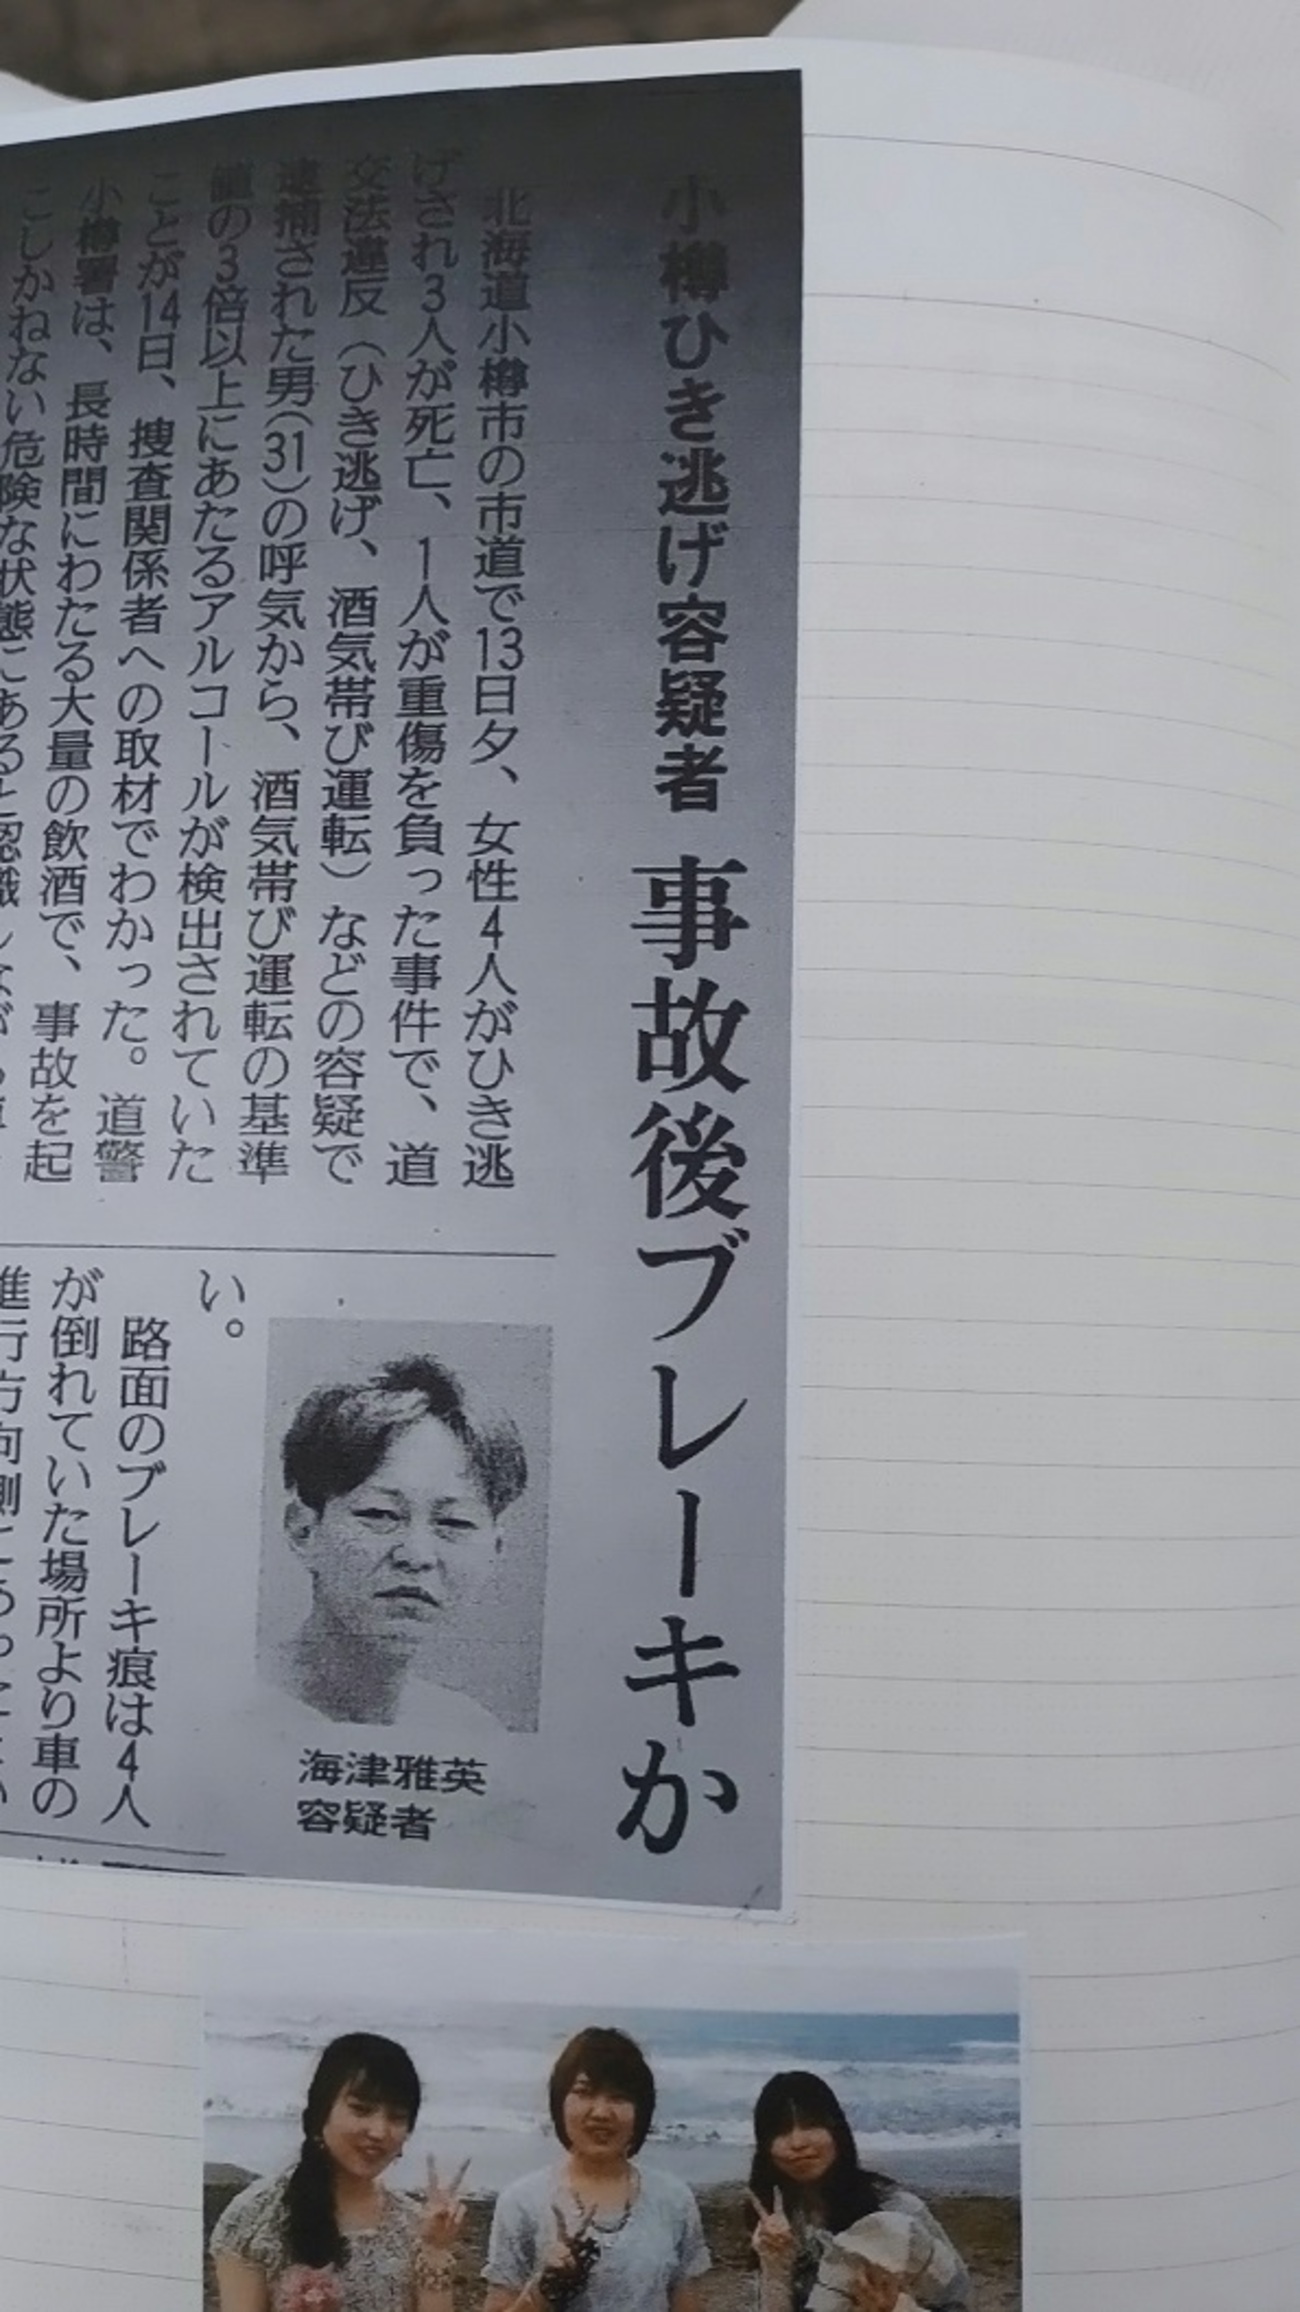 小樽ひき逃げ容疑者 事故後ブレーキか
北海道小樽市の市道で13日夕、女性4人がひき逃
げされ3人が死亡、1人が重傷を負った事件で、道
交法違反（ひき逃げ、酒気帯び運転）などの容疑で
逮捕された男(31)の呼気から、酒気帯び運転の基準
値の3倍以上にあたるアルコールが検出されていた
ことが14日、捜査関係者への取材でわかった。道警
小樽署は、長時間にわたる大量の飲酒で、事故を起
こしかねない危険な状態にあると認識しながら
海津雅英
容疑者
い。
路面のブレーキ痕は4人
が倒れていた場所より車の
進行方向側に